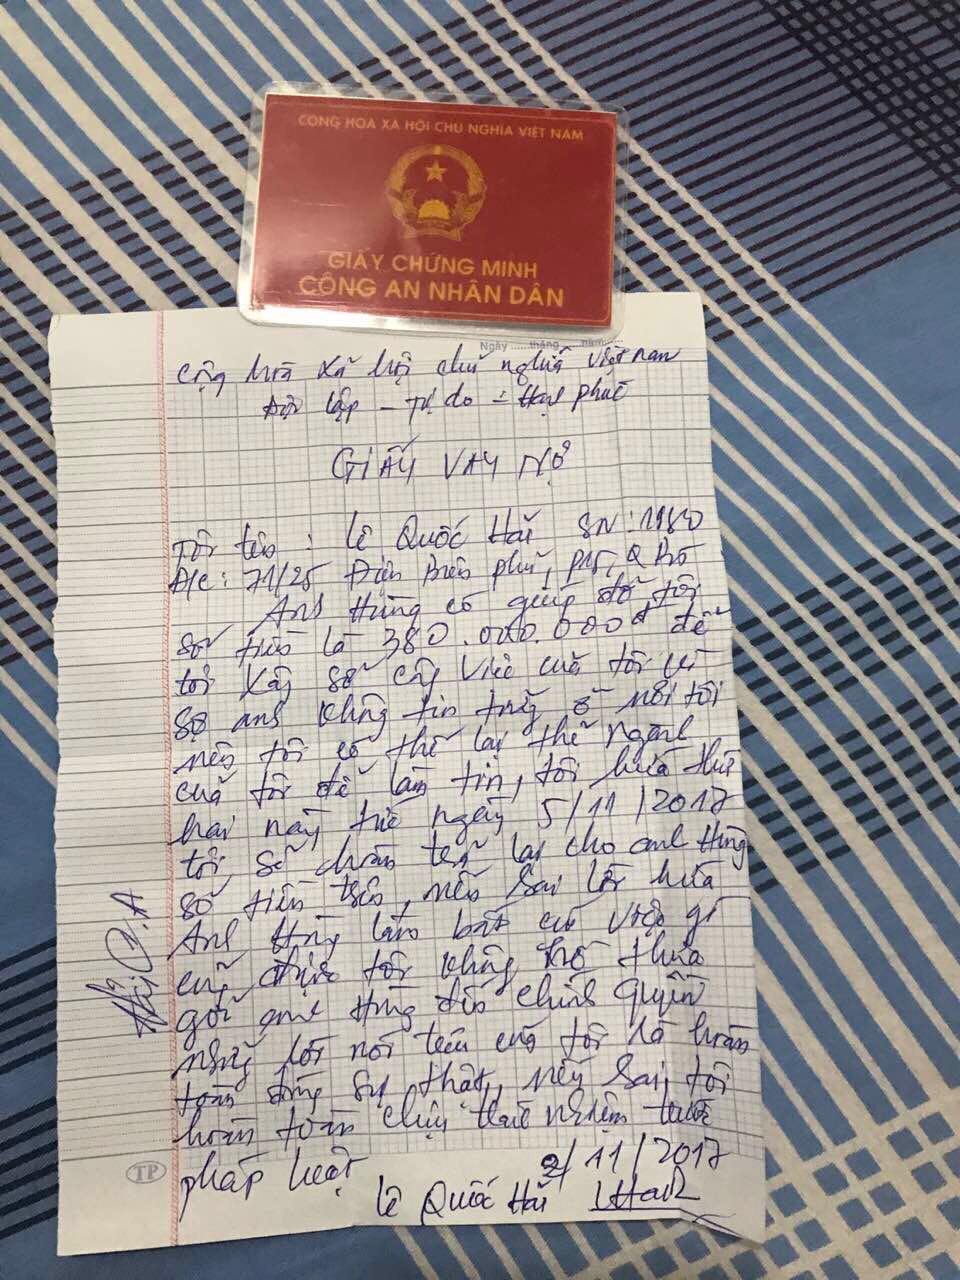 CỘNG HÒA XÃ HỘI CHỦ NGHĨA VIỆT NAM
GIẤY CHỨNG MINH
CÔNG AN NHÂN DÂN
Ngày ......tháng ......năm
Cộng hòa xã hội chủ nghĩa Việt nam
Độc lập - Tự do - Hạnh phúc
GIẤY VAY NỢ
Tôi tên : Lê Quốc Hải SN : 1980
Đ/c : 71/25 Điện Biên phủ, P15, Q
Anh Hùng có giúp đỡ tôi
số tiền là 380.000.000đ để
tôi công việc của tôi vì
sợ anh không tin tưởng ở nơi tôi
nên tôi có thế lại thẻ ngành
của tôi để làm tin, tôi hứa thứ
hai này tức ngày 5/11/2017
tôi sẽ hoàn trả lại cho anh Hùng
số tiền trên, nếu sai lời hứa
Anh Hùng làm bất cứ việc gì
cũng được tôi không thưa
gởi anh Hùng đến chính quyền
những lời nói trên của tôi là hoàn
toàn đúng sự thật, nếu sai tôi
hoàn toàn chịu trách nhiệm trước
pháp luật
2/11/2017
Lê Quốc Hải
TP